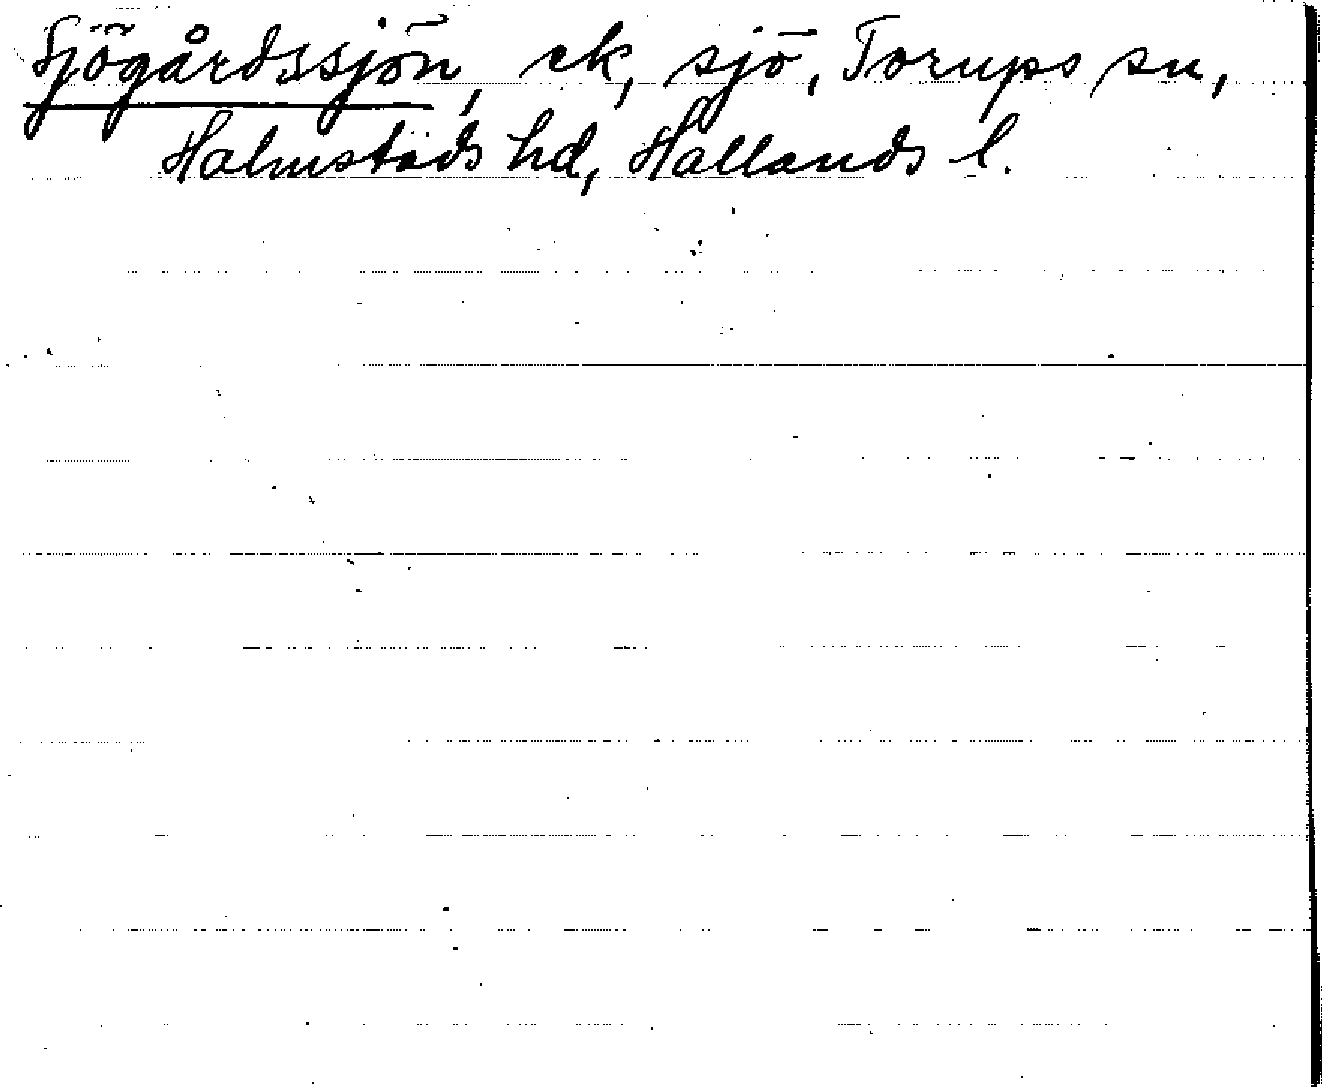 Sjögårdssjön, ek, sjö, Torups sn,
Halmstads hd, Hallands l.